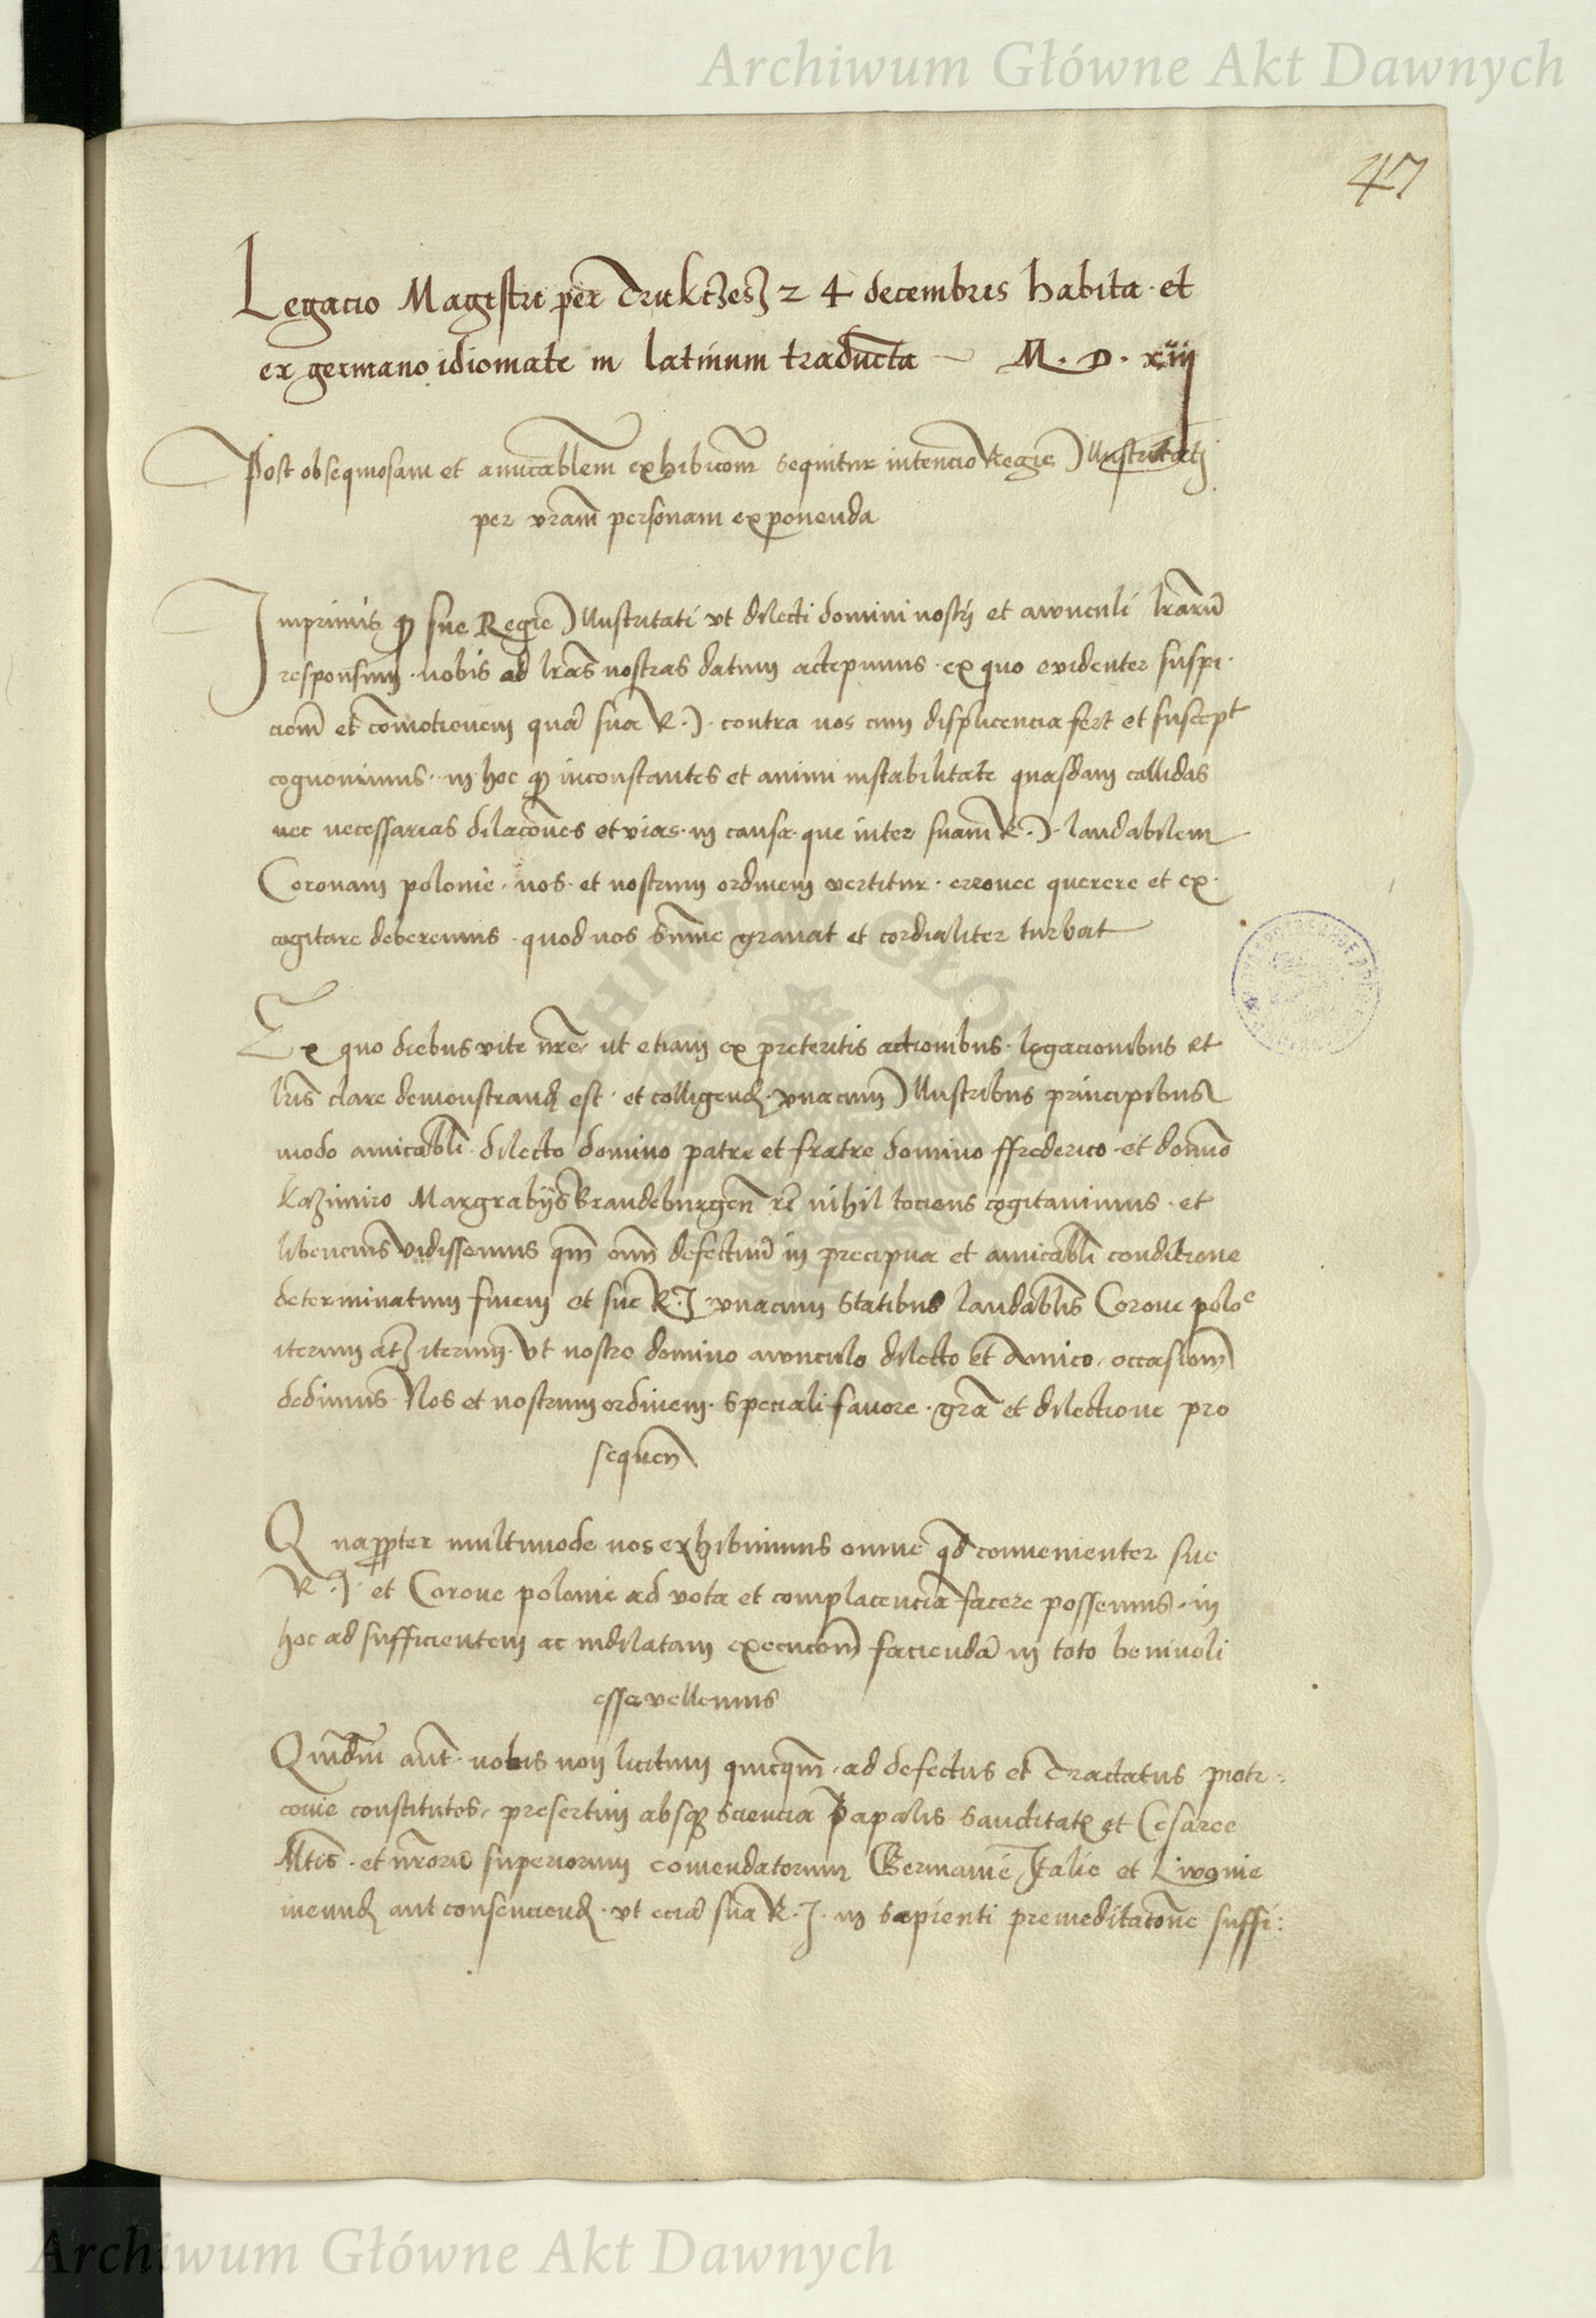 Archiwum Główne Akt Dawnych
47
Legacio Magistri per Trukczes 24 decembris habita et
ex germano idiomate in latinum traducta M. D. xiij
Post obsequiosam et amicablem exhibicom sequitur intencio Regie Illustritati
per vram personam exponenda
Inprimis sue Regie Illustritati vt dilecti domini nostri et awnculi lrarum
responsum nobis ad lras nostras datum accepimus ex quo evidenter suspi
ciom et comotionem qua sua R. I. contra nos cum displicencia fert et suscept
cognovimus in hoc inconstantes et animi instabilitate quasdam callidas
nec necessarias dilacones et vias in causa que inter suam R. I. laudabilem
Coronam polonie nos et nostrum ordinem vertitur querere et ex
cogitare deberemus quod nos sume gravat et cordialiter turbat
Ex quo diebus vite nre ut etiam ex preteritis actionibus legacionibus et
lris clare demonstrand est et colligend vnacum Illustribus principibus
modo amicabli dilecto domino patre et fratre domino ffrederico et domino
Kazimiro Margrabijs Brandeburgen nihil tociens cogitavimus et
libencius vidissemus qm omn defectuum in precipua et amicabli conditione
determinatum finem et sue R. I vnacum Statibus laudablis Corone polo e
iterum atq iterum vt nostro domino awnculo dilecto et Amico occasiom
dedimus Nos et nostrum ordinem speciali favore gra et dilectione pro
sequen
Quappter multimode nos exhibuimus omne qd convenienter sue
R. I. et Corone polonie ad vota et complacencia facere possemus in
hoc ad sufficientem ac indilatam execucom facienda in toto benivoli
esse vellemus
aut nobis non licitum quicqm ad defectus et Tractatus piotr
covie constitutos presertim absq sciencia Papalis Sanctitatis et Cesaree
Mtis et nrorum superiorum comendatorum Germanie Italie et Livonie
ineund aut consenciend vt ecia sua R. I. in sapienti premeditacone suffi:
Archiwum Główne Akt Dawnych